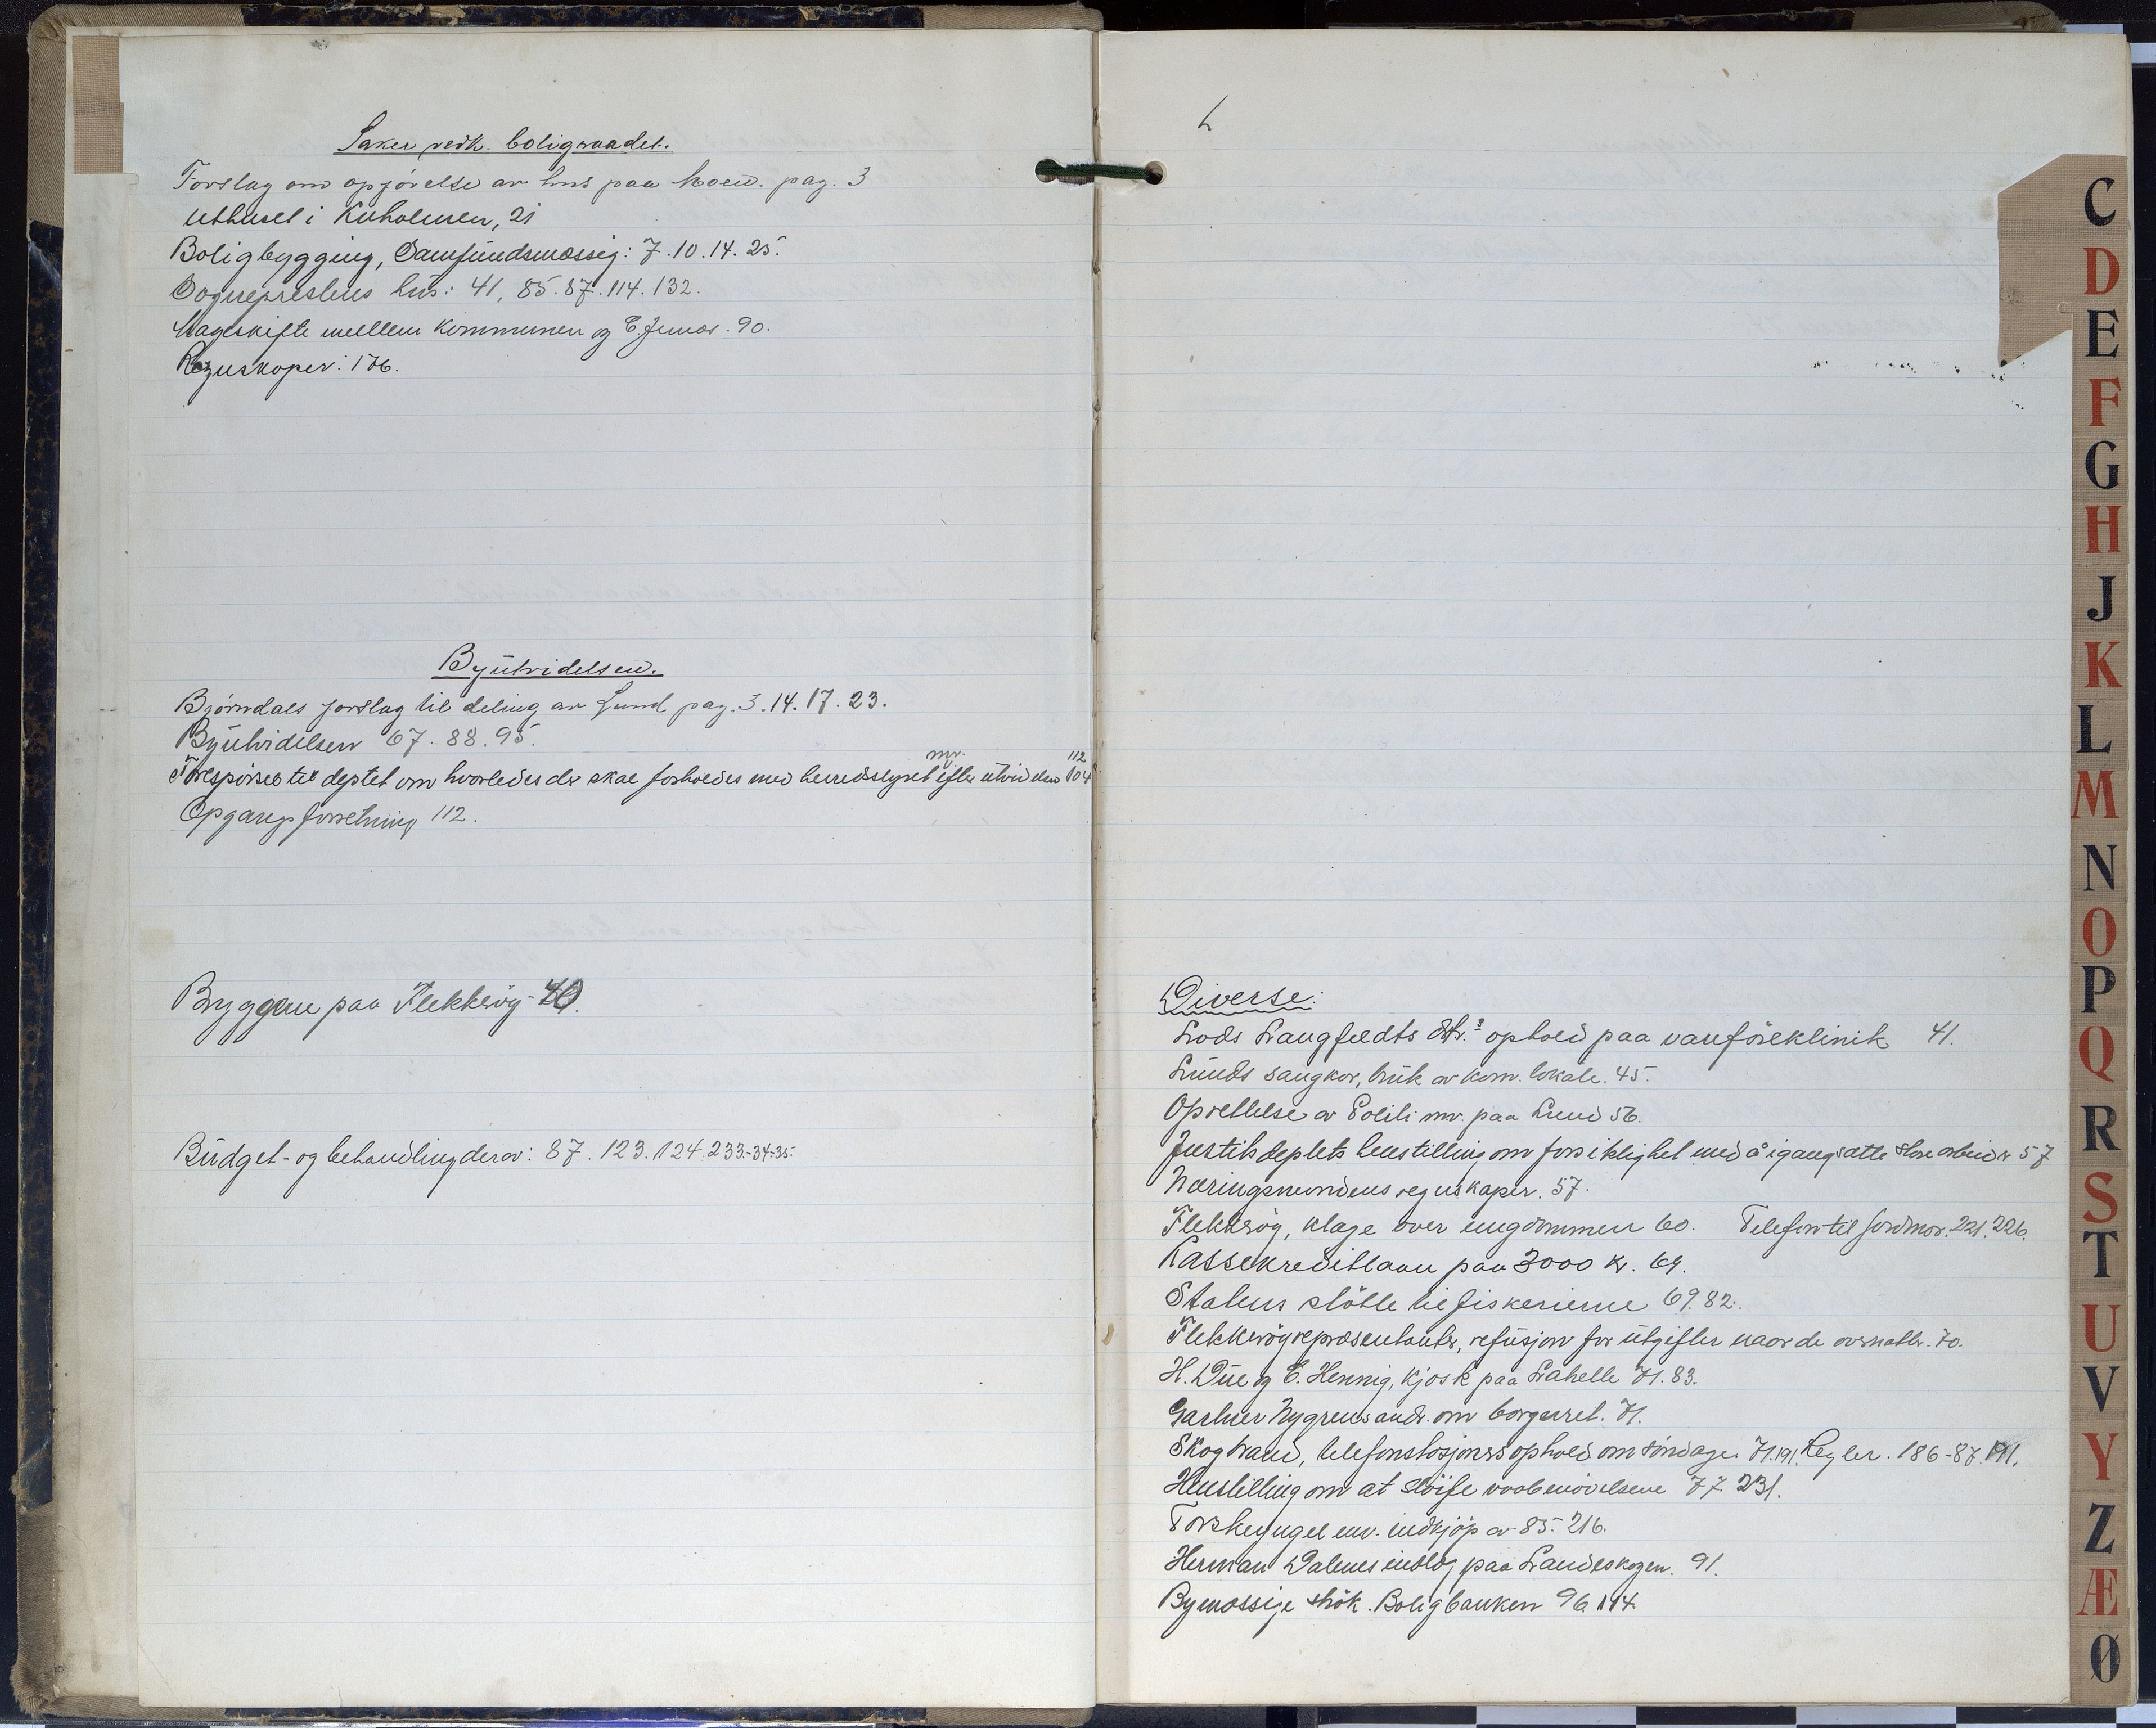 Saker vedk. boligraadet.
Forslag om opførelse av hus paa Moen. pag. 3
Uthuset i Kuholmen, 21
Boligbygging, Samfundsmæssig: 7.10.14.25.
Sogneprestens hus: 41, 85.87.114.132.
Mageskifte mellem Kommunen og E. 90.
Regnskaper: 176.
Byutvidelsen.
Bjørndals forslag til deling av Lund pag. 3.14.17.23.
Byutvidelsen 67.88.95.
Forespørsel til deptet om hvorledes der skal forholdes med herredsstyret mv. efter utvidelsen 104 112
Opgangsforretning 112.
Bryggene paa Flekkerøy - 40.
Budget - og behandling derav: 87.123.124.233-34-35-
L
Diverse:
Lods Langfeldts ophold paa vanføreklinik 41.
Lunds sangkor, bruk av kom. lokale. 45.
Oprettelse av Politi mv. paa Lund 56.
Justitsdeptets henstilling om forsiktighet med å igangsætte store arbeider 57
Næringsnevndens regnskaper. 57.
Flekkerøy, klage over ungdommen 60. Telefon til jordmor. 221.226.
Kassekreditlaan paa 3000 kr. 69.
Statens støtte til fiskerierne 69.82.
Flekkerøyrepræsentanter, refusjon for utgifter naar de overnatter. 70.
H. Due og E. Hennig, kjosk paa Lahelle 71.83.
Gartner Nygrens andr. om borgerret. 71.
Skogbrand, telefonstasjoners ophold om søndager 71.191. Regler. 186-87.191.
Henstilling om at sløife vaabenøvelsene 77. 231.
Torskeyngel mv. indkjøp av 85. 216.
Herman Dalenes indlæg paa Landeskogen. 91.
Bymæssige strøk. Boligbanken 96 114.